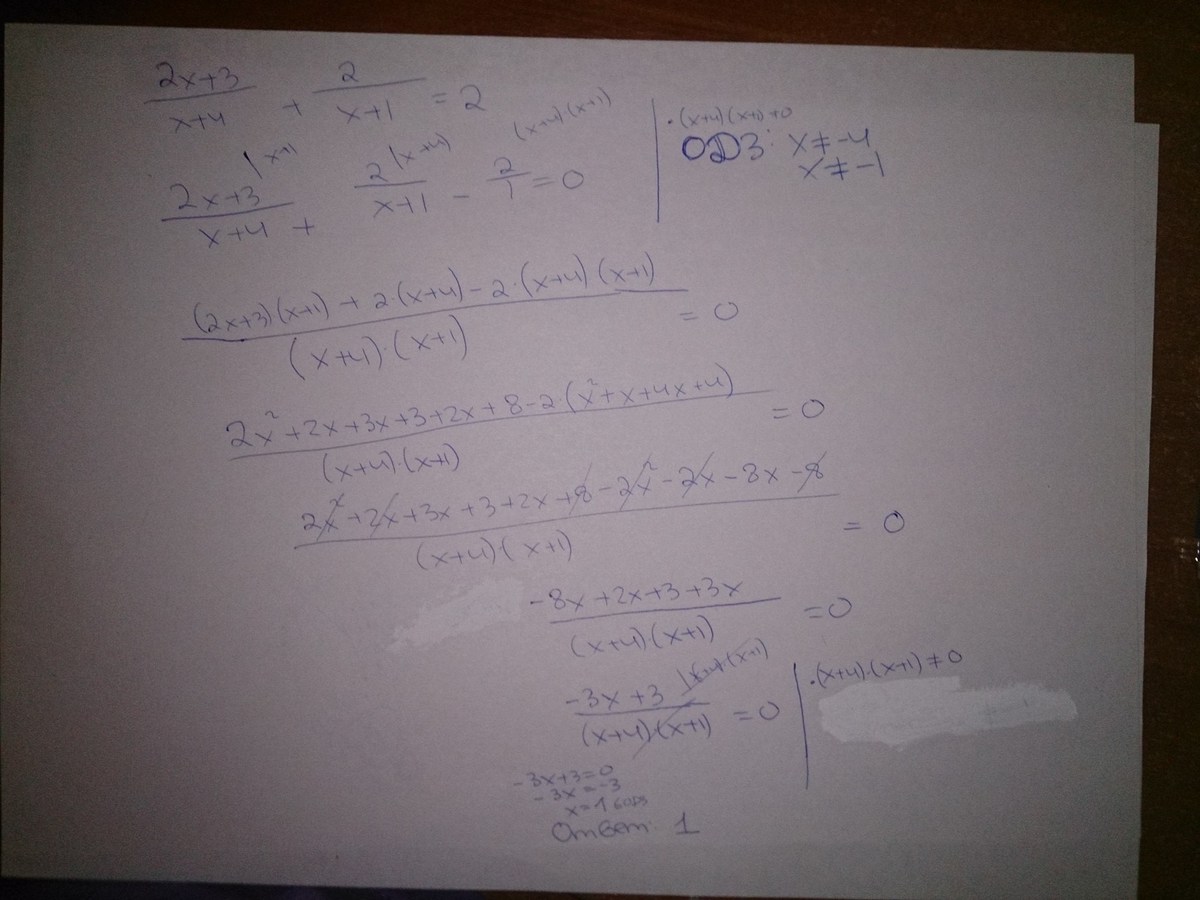 2x+3/x+4 + 2/x+1 = 2 | ·(x+4)(x+1)≠0
ОДЗ: x≠-4
x≠-1
2x+3/x+4 |x+1 + 2/x+1 |(x+4) - 2/1 (x+4)(x+1) = 0
(2x+3)(x+1) + 2·(x+4) - 2·(x+4)(x+1)/(x+4)·(x+1) = 0
2x²+2x+3x+3+2x+8-2·(x²+x+4x+4)/(x+4)·(x+1) = 0
2x²+2x+3x+3+2x+8-2x²-2x-8x-8/(x+4)·(x+1) = 0
-8x+2x+3+3x/(x+4)(x+1) = 0
-3x+3/(x+4)·(x+1) |(x+4)·(x+1) = 0 | ·(x+4)·(x+1)≠0
-3x+3=0
-3x=-3
x=1
Ответ: 1